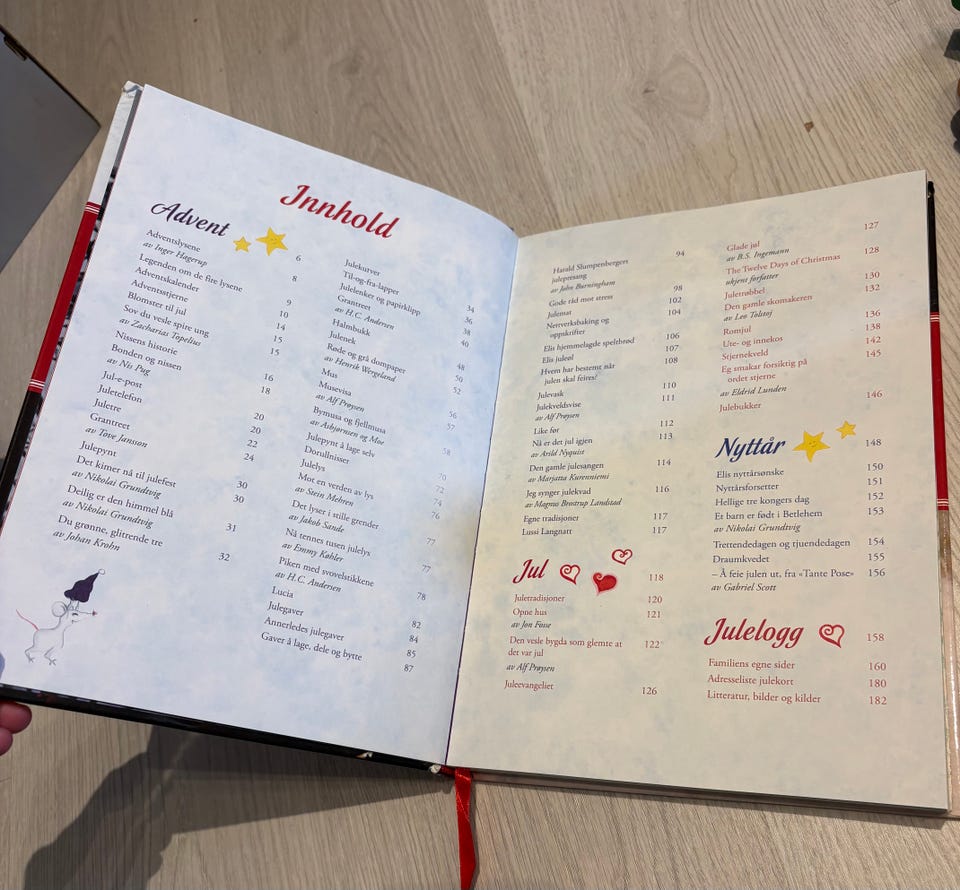 Innhold
Advent 6
Adventslysene
av Inger Hagerup 8
Legenden om de fire lysene 9
Adventskalender 10
Adventsstjerne 14
Blomster til jul 15
Sov du vesle spire ung 15
av Zacharias Topelius
Nissens historie 16
Bonden og nissen 18
av Nis Pug
Jul-e-post 20
Juletelefon 20
Juletre 22
Grantreet 24
av Tove Jansson
Julepynt 30
Det kimer nå til julefest 30
av Nikolai Grundtvig
Deilig er den himmel blå 31
av Nikolai Grundtvig
Du grønne, glitrende tre 32
av Johan Krohn
Julekurver 34
Til-og-fra-lapper 36
Julelenker og papirklipp 38
Grantreet 40
av H.C. Andersen
Halmbukk 48
Julenek 50
Røde og grå dompaper 52
av Henrik Wergeland
Mus 56
Musevisa 57
av Alf Prøysen
Bymusa og fjellmusa 58
av Asbjørnsen og Moe
Julepynt å lage selv 70
Dorullnisser 72
Julelys 74
Mot en verden av lys 76
av Stein Mehren
Det lyser i stille grender 77
av Jakob Sande
Nå tennes tusen julelys 77
av Emmy Køhler
Piken med svovelstikkene 78
av H.C. Andersen
Lucia 82
Julegaver 84
Annerledes julegaver 85
Gaver å lage, dele og bytte 87
Harald Slumpenbergers 94
julepresang
av John Burningham
Gode råd mot stress 98
Julemat 102
Nettverksbaking og 104
oppskrifter
Elis hjemmelagde speltbrød 106
Elis juleøl 107
Hvem har bestemt når 108
julen skal feires?
Julevask 110
Julekveldsvise 111
av Alf Prøysen
Like før 112
Nå er det jul igjen 113
av Arild Nyquist
Den gamle julesangen 114
av Marjatta Kurenniemi
Jeg synger julekvad 116
av Magnus Brostrup Landstad
Egne tradisjoner 117
Lussi Langnatt 117
Jul 118
Juletradisjoner 120
Opne hus 121
av Jon Fosse
Den vesle bygda som glemte at 122
det var jul
av Alf Prøysen
Juleevangeliet 126
Glade jul 127
av B.S. Ingemann
The Twelve Days of Christmas 128
ukjent forfatter
Juletrøbbel 130
Den gamle skomakeren 132
av Leo Tolstoj
Romjul 136
Ute- og innekos 138
Stjernekveld 142
Eg smakar forsiktig på 145
ordet stjerne
av Eldrid Lunden
Julebukker 146
Nyttår 148
Elis nyttårsønske 150
Nyttårsforsetter 151
Hellige tre kongers dag 152
Et barn er født i Betlehem 153
av Nikolai Grundtvig
Trettendedagen og tjuendedagen 154
Draumkvedet 155
– Å feie julen ut, fra «Tante Pose» 156
av Gabriel Scott
Julelogg 158
Familiens egne sider 160
Adresseliste julekort 180
Litteratur, bilder og kilder 182